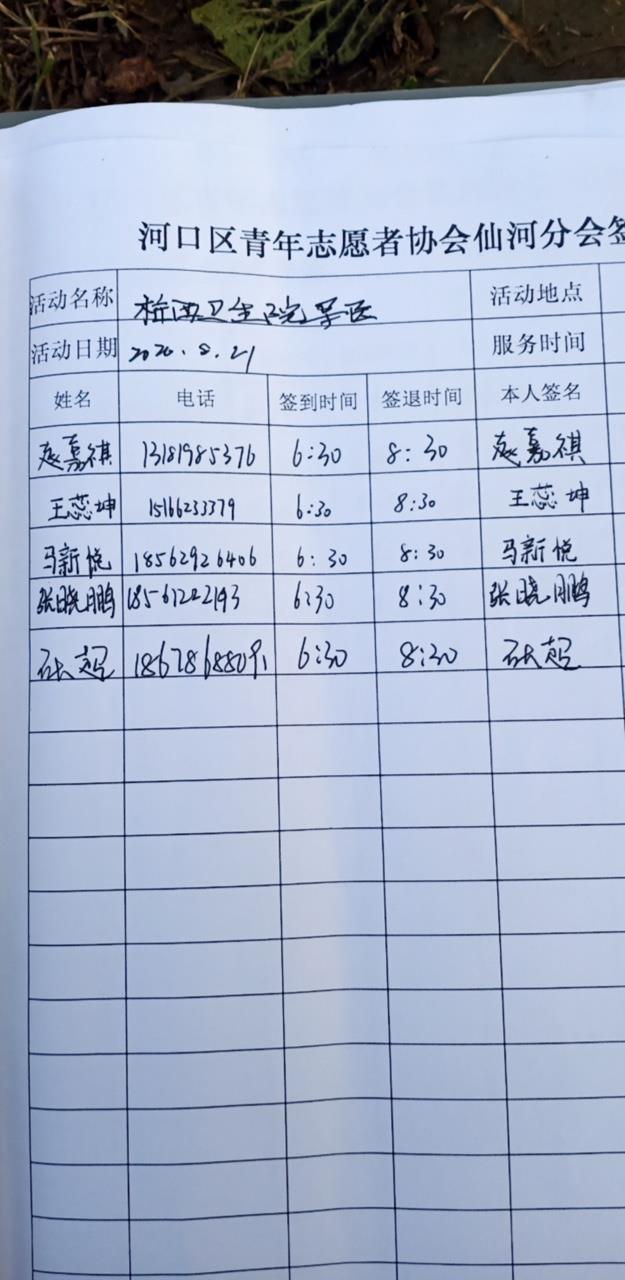 河口区青年志愿者协会仙河分会签
活动名称 桥西卫生院义医 活动地点
活动日期 2020.8.21 服务时间
姓名 电话 签到时间 签退时间 本人签名
嘉祺 13181985376 6:30 8:30 嘉祺
王蕊坤 15166233379 6:30 8:30 王蕊坤
马新悦 18562926406 6:30 8:30 马新悦
张晓鹏 18561222193 6:30 8:30 张晓鹏
张超 6:30 8:30 张超